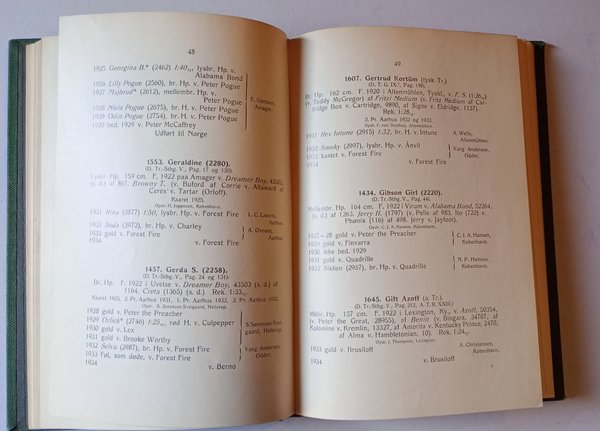 48
1925 Georgina B.* (2462) 1:40,0, lysbr. Hp. v.
Alabama Bond
1926 Lilly Pogue (2560), br. Hp. v. Peter Pogue
1927 Maibrud* (2612), mellembr. Hp. v.
Peter Pogue
1928 Niels Pogue (2675), br. H. v. Peter Pogue
1929 Odin Pogue (2754), br. H. v. Peter Pogue
1930 bed. 1929 v. Peter McCaffrey
Udført til Norge
Amager.
1553. Geraldine (2280).
(D. Tr.-Stbg. V., Pag. 17 og 130).
Lysbr. Hp. 159 cm. F. 1922 paa Amager v. Dreamer Boy, 43503,
(s. d.) af 867. Browny T. (v. Buford af Corrie v. Allaward af
Ceres v. Tartar (Orloff).
Kaaret 1925.
Opdr. H. Jeppesen, København.
1931 Rina (2877) 1:50, lysbr. Hp. v. Forest Fire
1932 Soda (2972), br. Hp. v. Charley
1933 gold v. Forest Fire
1934 v. Forest Fire
L. C. Lassen,
Aarhus.
A. Ovesen,
Aarhus.
1457. Gerda S. (2258).
(D. Tr.-Stbg. V., Pag. 24 og 131).
Br. Hp. F. 1922 i Uvelse v. Dreamer Boy, 43503 (s. d.) af
1164. Creta (1365) (s. d.) Rek. 1:33,0.
Kaaret 1925. 2 Pr. Aarhus 1931. 1 Pr. Aarhus 1932. 2 Pr. Aarhus 1933.
Opdr. S. Sørensen Sveigaard, Hellerup.
1928 gold v. Peter the Preacher
1929 Orlick* (2740) rød H. v. Culpepper
1930 gold v. Lex
1931 gold v. Brooke Worthy
1932 Selva (2987), br. Hp. v. Forest Fire
1933 Føl, som døde, v. Forest Fire
1934 v. Berno
S. Sørensen Svei-
gaard, Hellerup.
Vang Andersen,
Odder.
49
1607. Gertrud Kortüm (tysk Tr.)
Br. Hp. 162 cm. F. 1920 i Altenmühlen, Tyskl., v. F. S.
(v. Teddy McGregor) af Fritzi Medium (v. Medium af Car-
tridge Box v. Cartridge, 8890, af Signa v. Eldridge, 5137).
2 Pr. Aarhus 1932 og 1933.
1931 Rex Intune (2915) 1:32, br. H. v. Intune
1932 Smoky (2997), lysbr. Hp. v. Anvil
1933 kastet v. Forest Fire
1934 v. Forest Fire
A. Wolfa,
Altenmühlen.
Vang Andersen,
Odder.
1434. Gibson Girl (2220).
(D. Tr.-Stbg. V., Pag. 44)
Mellembr. Hp. 164 cm. F. 1922 i Virum v. Alabama Bond, 52264,
(s. d.) af 1263. Jerry II. (1797) (v. Pelle af 983. Ito (722) v.
Phønix af 994. Jerry v. Jayfoot).
Opdr. C. J. A. Hansen, København.
1927—28 gold v. Peter the Preacher
1929 gold v. Finvarra
1930 ikke bed. 1929
1931 gold v. Quadrille
1932 Sisken (2967), br. Hp. v. Quadrille
C. J. A. Hansen,
København.
N. P. Hansen,
København.
1645. Gift Azoff (a. Tr.)
(D. Tr.-Stbg. V., Pag. 212, A. T. R. XXIII)
Mkbr. Hp. 157 cm. F. 1922 i Lexington, Ky., v. Azoff, 50354,
(v. Peter the Great, 28955), af Benin (v. Bingara, 34707, af
Kalomine v. Kremlin, 13342, af Amorita v. Kentucky Prince, 2470,
af Alma v. Hambletonian, 10).
Opdr. J. Thompson, Lexington.
1933 gold v. Brusiloff
1934 v. Brusiloff
A. Christensen,
København.